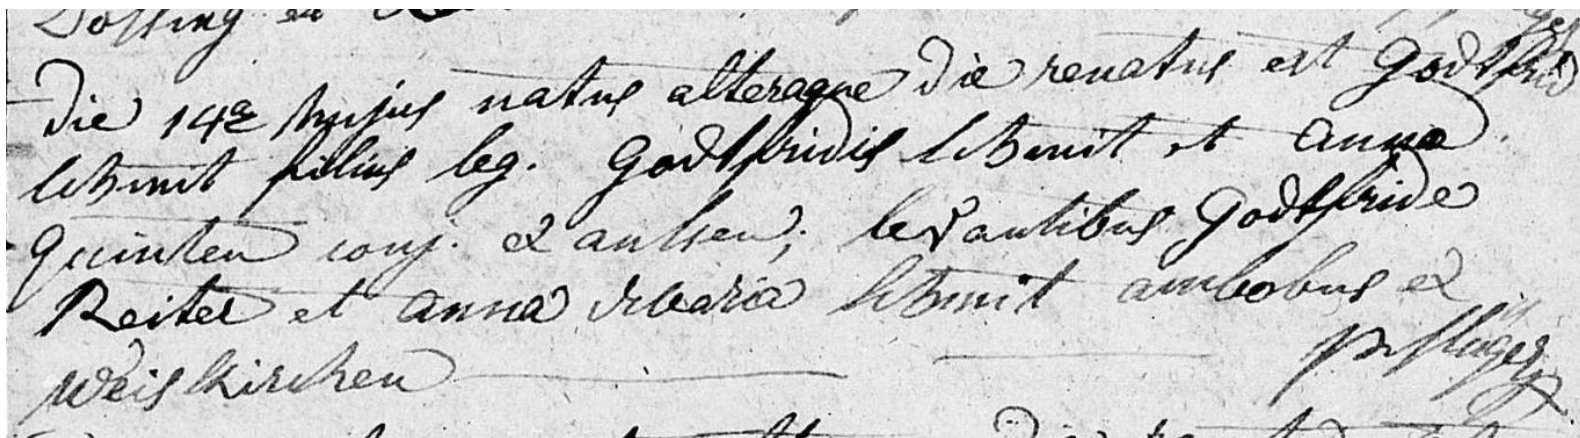 die 14ª hujus natus alteraque die renatus est Godtfrid
schmit filius leg. Godtfridis schmit et anna
quinten conj. ex ; levantibus Godtfride
Reiter et anna Maria schmit ambobus ex
Weiskirchen